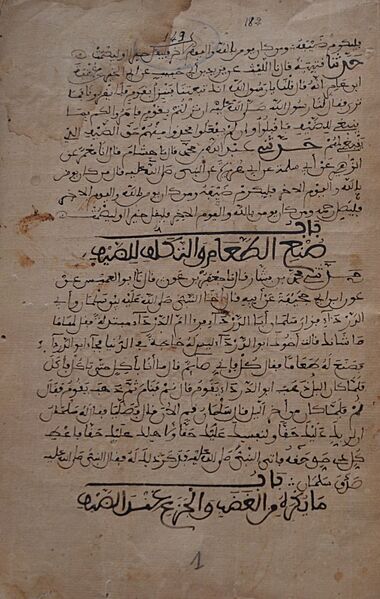 182
فليكرم ضيفه ومن كان يومن بالله واليوم الاخر فليقل خيرا او ليصمت
حدثنا قتيبة قال نا الليث عن يزيد بن ابي حبيب عن ابي الخير عن عقبة
ابن عامر انه قال قلنا يا رسول الله انك تبعثنا فننزل بقوم فلا يقروننا فما
ترى فقال لنا رسول الله صلى الله عليه ان نزلتم بقوم فامروا لكم بما
ينبغي للضيف فاقبلوا فان لم يفعلوا فخذوا منهم حق الضيف الذي
ينبغي لهم حدثني عبد الله بن محمد قال نا هشام قال انا معمر عن
الزهري عن ابي سلمة عن ابي هريرة عن النبي صلى الله عليه قال من كان يومن
بالله واليوم الاخر فليكرم ضيفه ومن كان يومن بالله واليوم الاخر
فليصل رحمه ومن كان يومن بالله واليوم الاخر فليقل خيرا او ليصمت
باب
صنع الطعام والتكلف للضيف
حدثني محمد بن بشار قال نا جعفر بن عون قال نا ابو العميس عن
عون بن ابي جحيفة عن ابيه قال اخى النبي صلى الله عليه بين سلمان وابي
الدرداء فزار سلمان ابا الدرداء فراى ام الدرداء متبذلة فقال لها ما
شانك قالت اخوك ابو الدرداء ليس له حاجة في الدنيا فجاء ابو الدرداء
فصنع له طعاما فقال كل فاني صائم قال ما انا باكل حتى تاكل فاكل
فلما كان الليل ذهب ابو الدرداء يقوم فقال نم فنام ثم ذهب يقوم فقال
نم فلما كان من اخر الليل قال سلمان قم الان قال فصليا فقال له سلمان
ان لربك عليك حقا ولنفسك عليك حقا ولاهلك عليك حقا فاعط
كل ذي حق حقه فاتى النبي صلى الله عليه فذكر ذلك له فقال النبي صلى الله عليه
صدق سلمان باب
ما يكره من الغضب والجزع عند الضيف
1